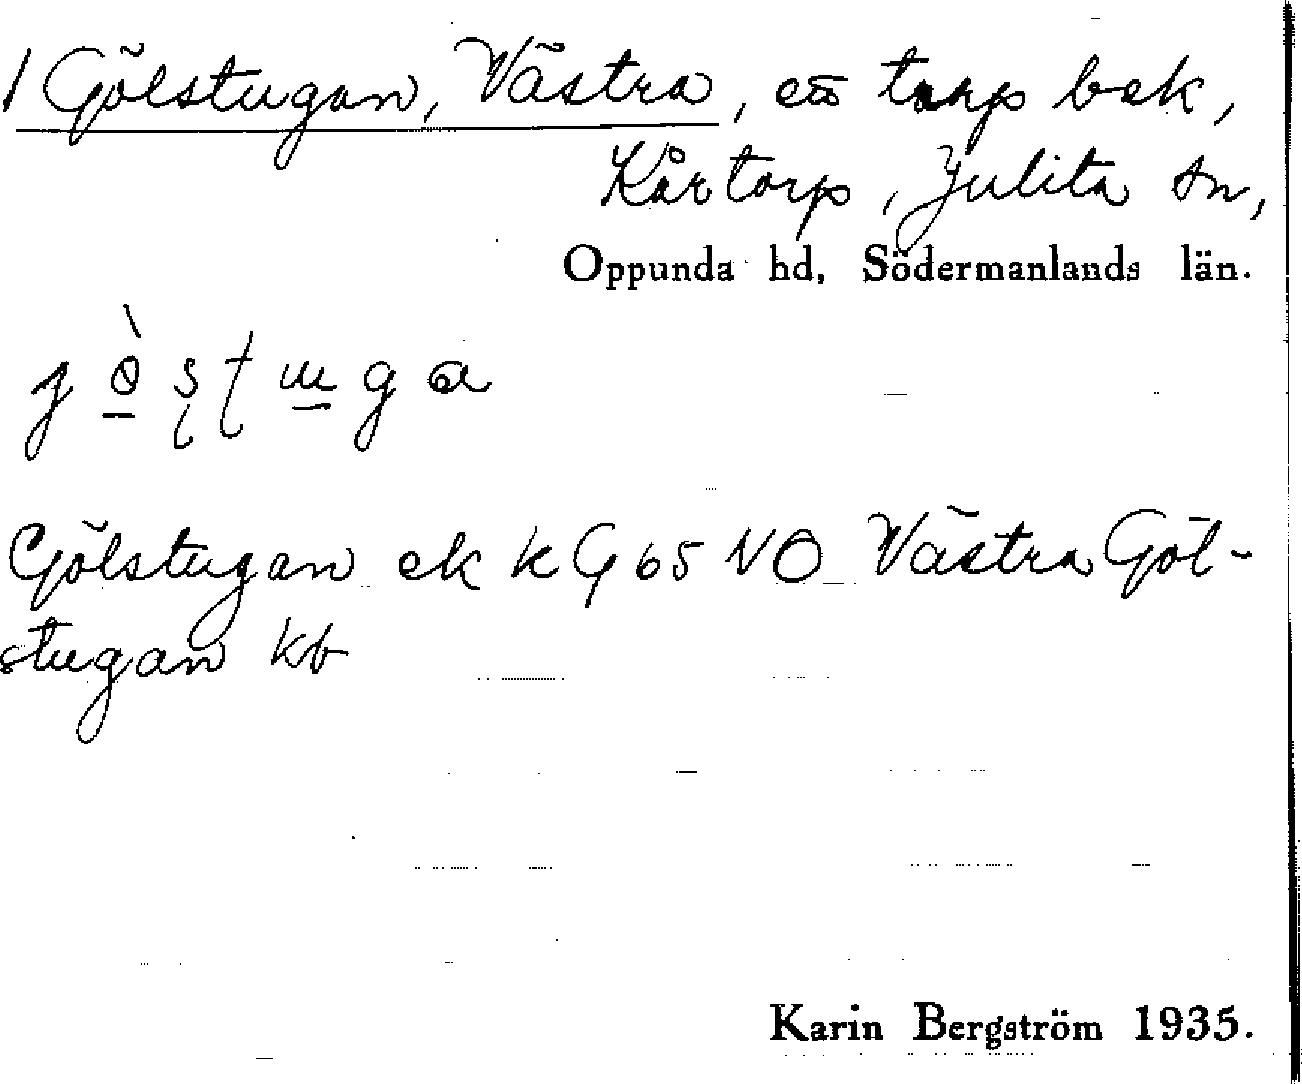 1 Gölstugan, Västra, torp bek,
Kårtorp, Julita sn,
Oppunda hd, Södermanlands län.
Gölstugan ek k G 65 NO Västra Göl-
stugan kb
Karin Bergström 1935.